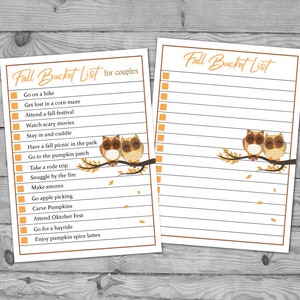 Fall Bucket List for couples
Go on a hike
Get lost in a corn maze
Attend a fall festival
Watch scary movies
Stay in and cuddle
Have a fall picnic in the park
Go to the pumpkin patch
Take a rode trip
Snuggle by the fire
Make smores
Go apple picking
Carve Pumpkins
Attend Oktober Fest
Go for a hayride
Enjoy pumpkin spice lattes
Fall Bucket List